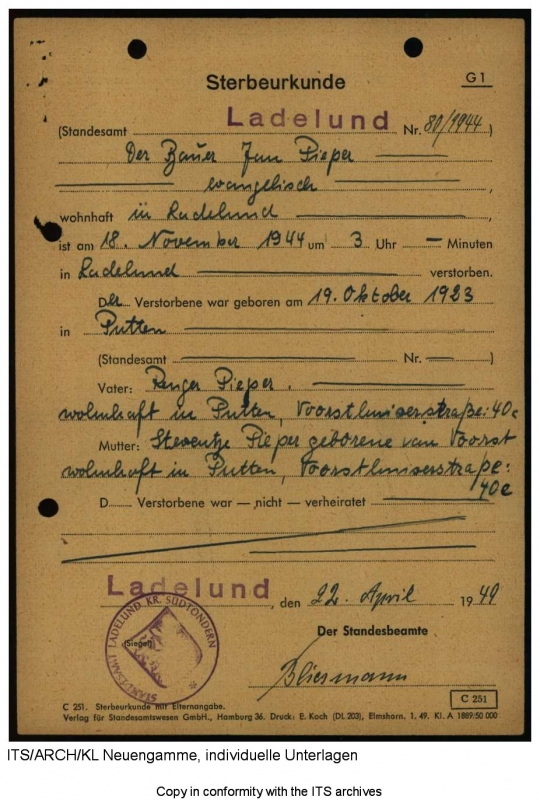 Sterbeurkunde
G 1
(Standesamt Ladelund Nr. 80/1944)
Der Bauer Jan Pieper
evangelisch,
wohnhaft in Ladelund,
ist am 18. November 1944 um 3 Uhr — Minuten
in Ladelund verstorben.
Der Verstorbene war geboren am 19. Oktober 1923
in Putten
(Standesamt Nr. )
Vater: Rutger Pieper.
wohnhaft in Putten, Voorsthuiserstraße: 40c
Mutter: Pieper geborene van Voorst
wohnhaft in Putten, Voorsthuiserstraße:
40c
D Verstorbene war — nicht — verheiratet
Ladelund, den 22. April 1949
STANDESAMT LADELUND KR. SÜDTONDERN
(Siegel)
Der Standesbeamte
C 251. Sterbeurkunde mit Elternangabe.
C 251
Verlag für Standesamtswesen GmbH., Hamburg 36. Druck: E. Koch (Dl. 203), Elmshorn. 1. 49. Kl. A 1889/50 000
ITS/ARCH/KL Neuengamme, individuelle Unterlagen
Copy in conformity with the ITS archives